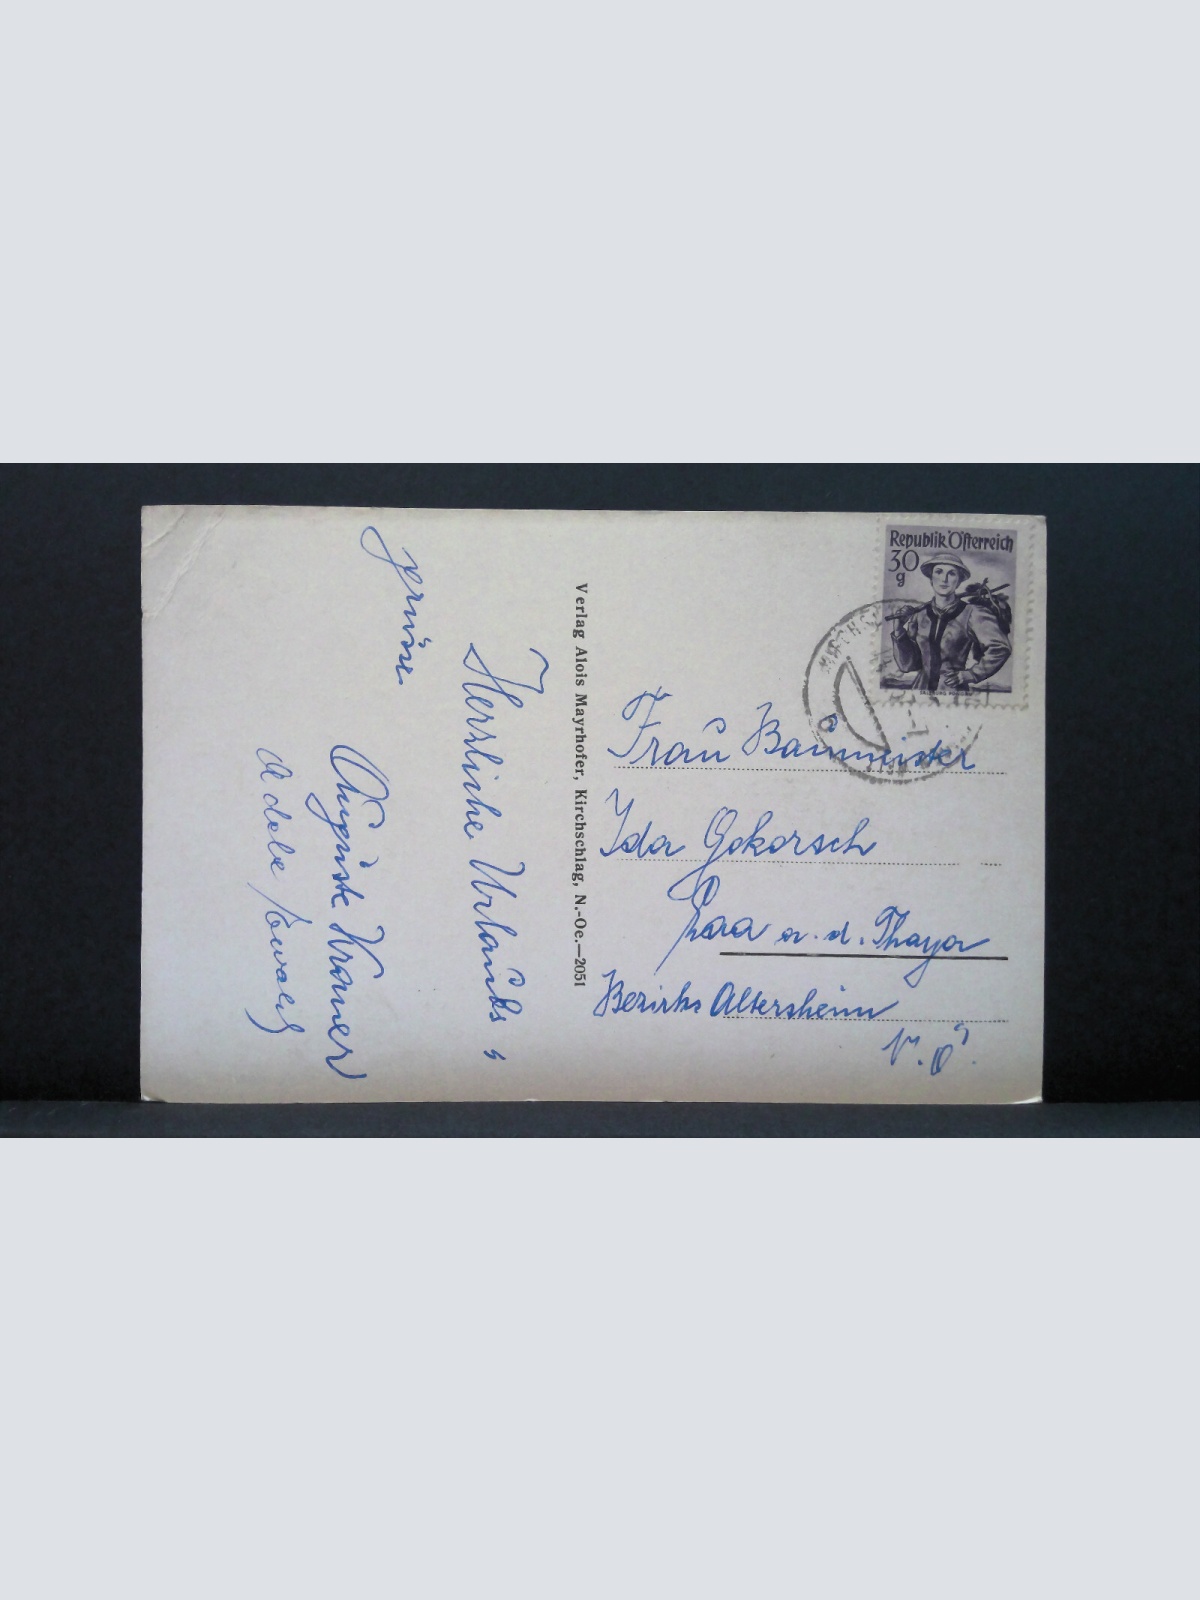 Herzliche Urlaubs
grüsse
Auguste Kramer
Adele Ewald
Verlag Alois Mayrhofer, Kirchschlag, N.-Oe.—2051
Republik Österreich
30
g
Frau Baumeister
Ida Gokorsch
Laa a. d. Thaya
Bezirks Altersheim
N.Ö.